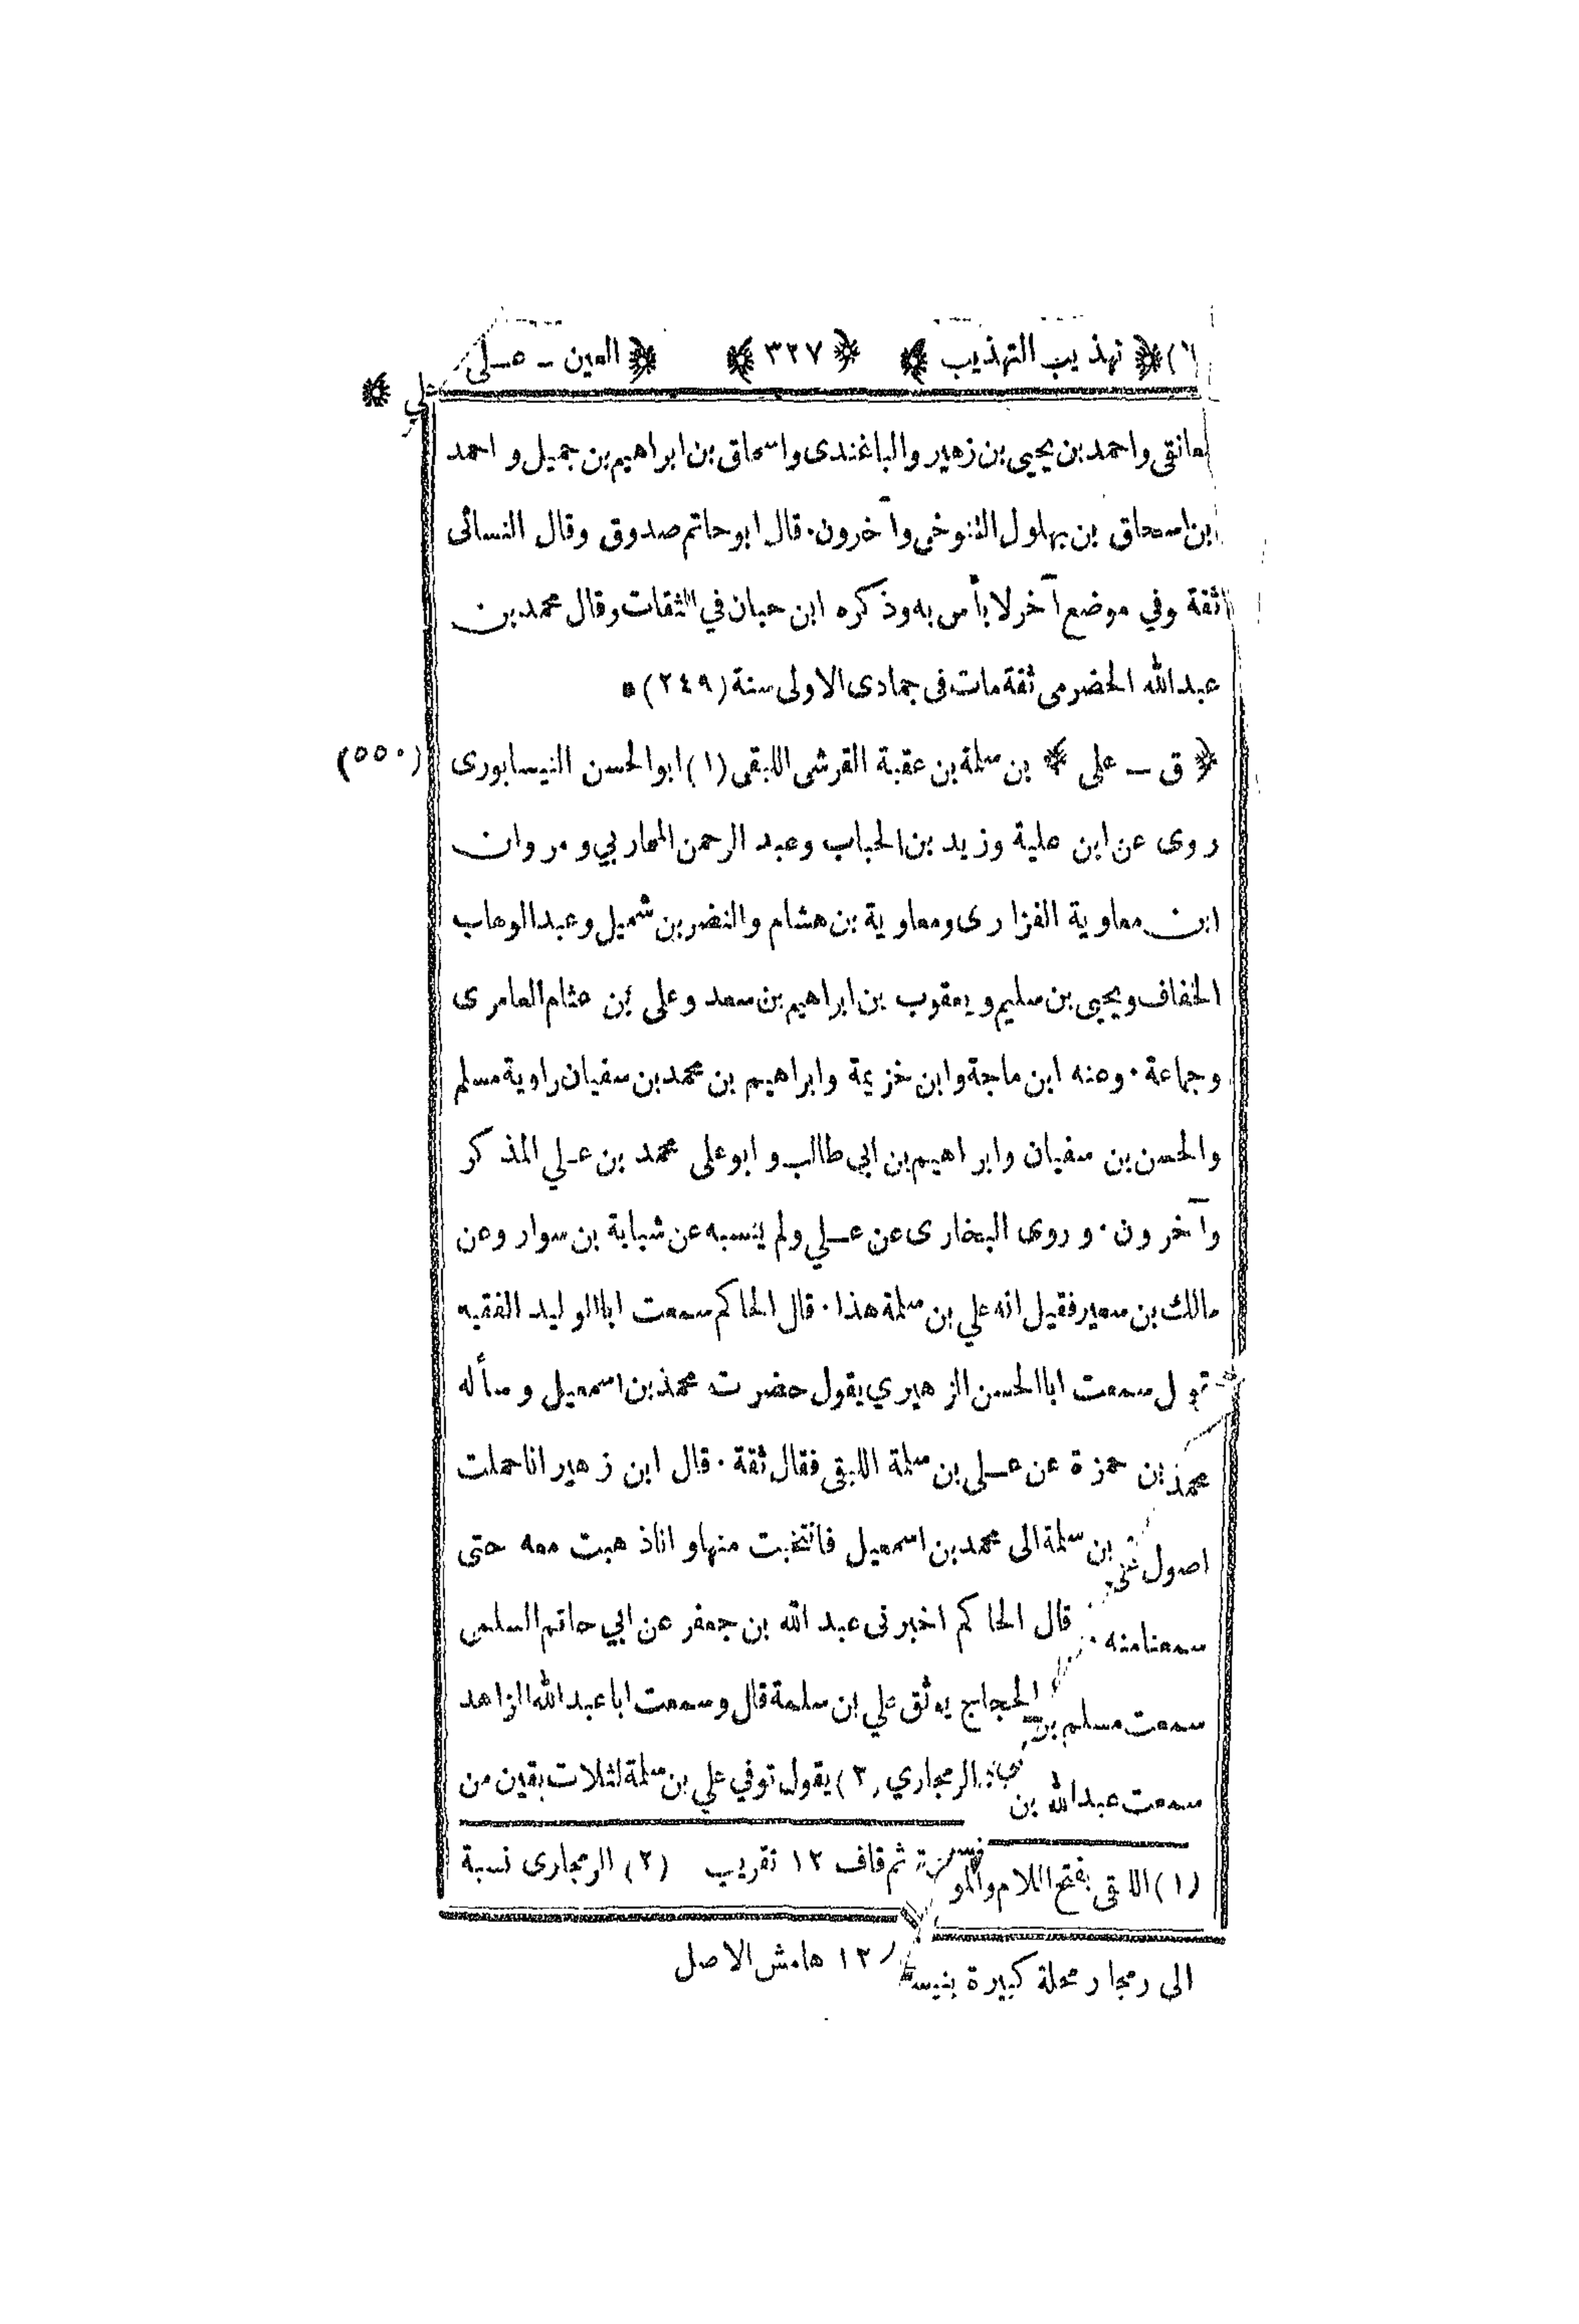 ﴿ تهذيب التهذيب ﴾ ﴿ ٣٢٧ ﴾ ﴿ العين - على ﴾
واحمد بن يحيى بن زهير والباغندى واسحاق بن ابراهيم بن جميل و احمد
ابن اسحاق بن بهلول التنوخى وآخرون ٠ قال ابو حاتم صدوق وقال النسائى
ثقة وفي موضع آخر لا بأس به وذكره ابن حبان في الثقات وقال محمد بن
عبد الله الحضرمى ثقة مات فى جمادى الاولى سنة (٢٤٩) *
﴿ ق - على ﴾ بن سلمة بن عقبة القرشى اللبقى (١) ابو الحسن النيسابورى (٥٥٠)
روى عن ابن علية وزيد بن الحباب وعبد الرحمن المحاربي و مروان
ابن معاوية الفزارى ومعاوية بن هشام والنضر بن شميل وعبد الوهاب
الخفاف ويحيى بن سليم ويعقوب بن ابراهيم بن سعد وعلى بن عثام العامرى
وجماعة ٠ وعنه ابن ماجة وابن خزيمة وابراهيم بن محمد بن سفيان راوية مسلم
والحسن بن سفيان وابراهيم بن ابي طالب و ابو على محمد بن علي المذكر
وآخرون ٠ و روى البخارى عن علي ولم ينسبه عن شبابة بن سوار وعن
مالك بن سعير فقيل انه علي بن سلمة هذا ٠ قال الحاكم سمعت ابا الوليد الفقيه
يقول سمعت ابا الحسن الزهيري يقول حضرت محمد بن اسمعيل وسأله
محمد بن حمزة عن على بن سلمة اللبقى فقال ثقة ٠ قال ابن زهير انا حملت
اصول على بن سلمة الى محمد بن اسمعيل فانتخبت منها و انا ذهبت معه حتى
سمعنا منه ٠ قال الحاكم اخبرنى عبد الله بن جعفر عن ابي حاتم السلمى
سمعت مسلم بن الحجاج يوثق علي بن سلمة قال وسمعت ابا عبد الله الزاهد
سمعت عبد الله بن الرمجاري (٢) يقول توفي علي بن سلمة لثلاث بقين من
(١) اللبقى بفتح اللام والموحدة ثم قاف ١٢ تقريب (٢) الرمجارى نسبة
الى رمجار محلة كبيرة ١٢ هامش الاصل